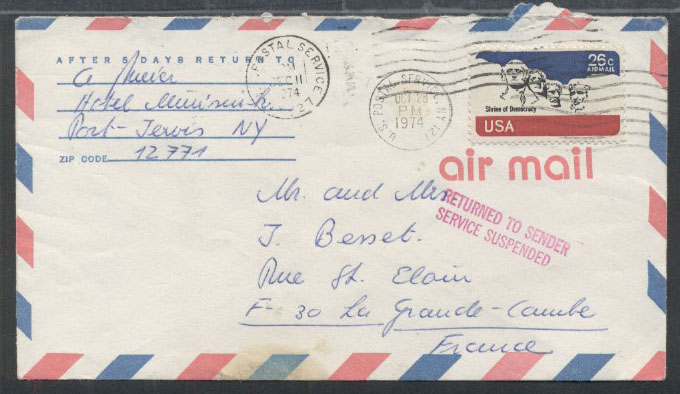 AFTER 5 DAYS RETURN TO
Hotel
Port-Jervis NY
ZIP CODE 12771
U.S. POSTAL SERVICE
DEC 11
1974
127
U.S. POSTAL SERVICE, NY 127
OCT 28
PM
1974
26c
AIRMAIL
Shrine of Democracy
USA
air mail
RETURNED TO SENDER
SERVICE SUSPENDED
Mr. and Mrs
J. Besset.
Rue St. Eloin
F-30 La Grande-Combe
France